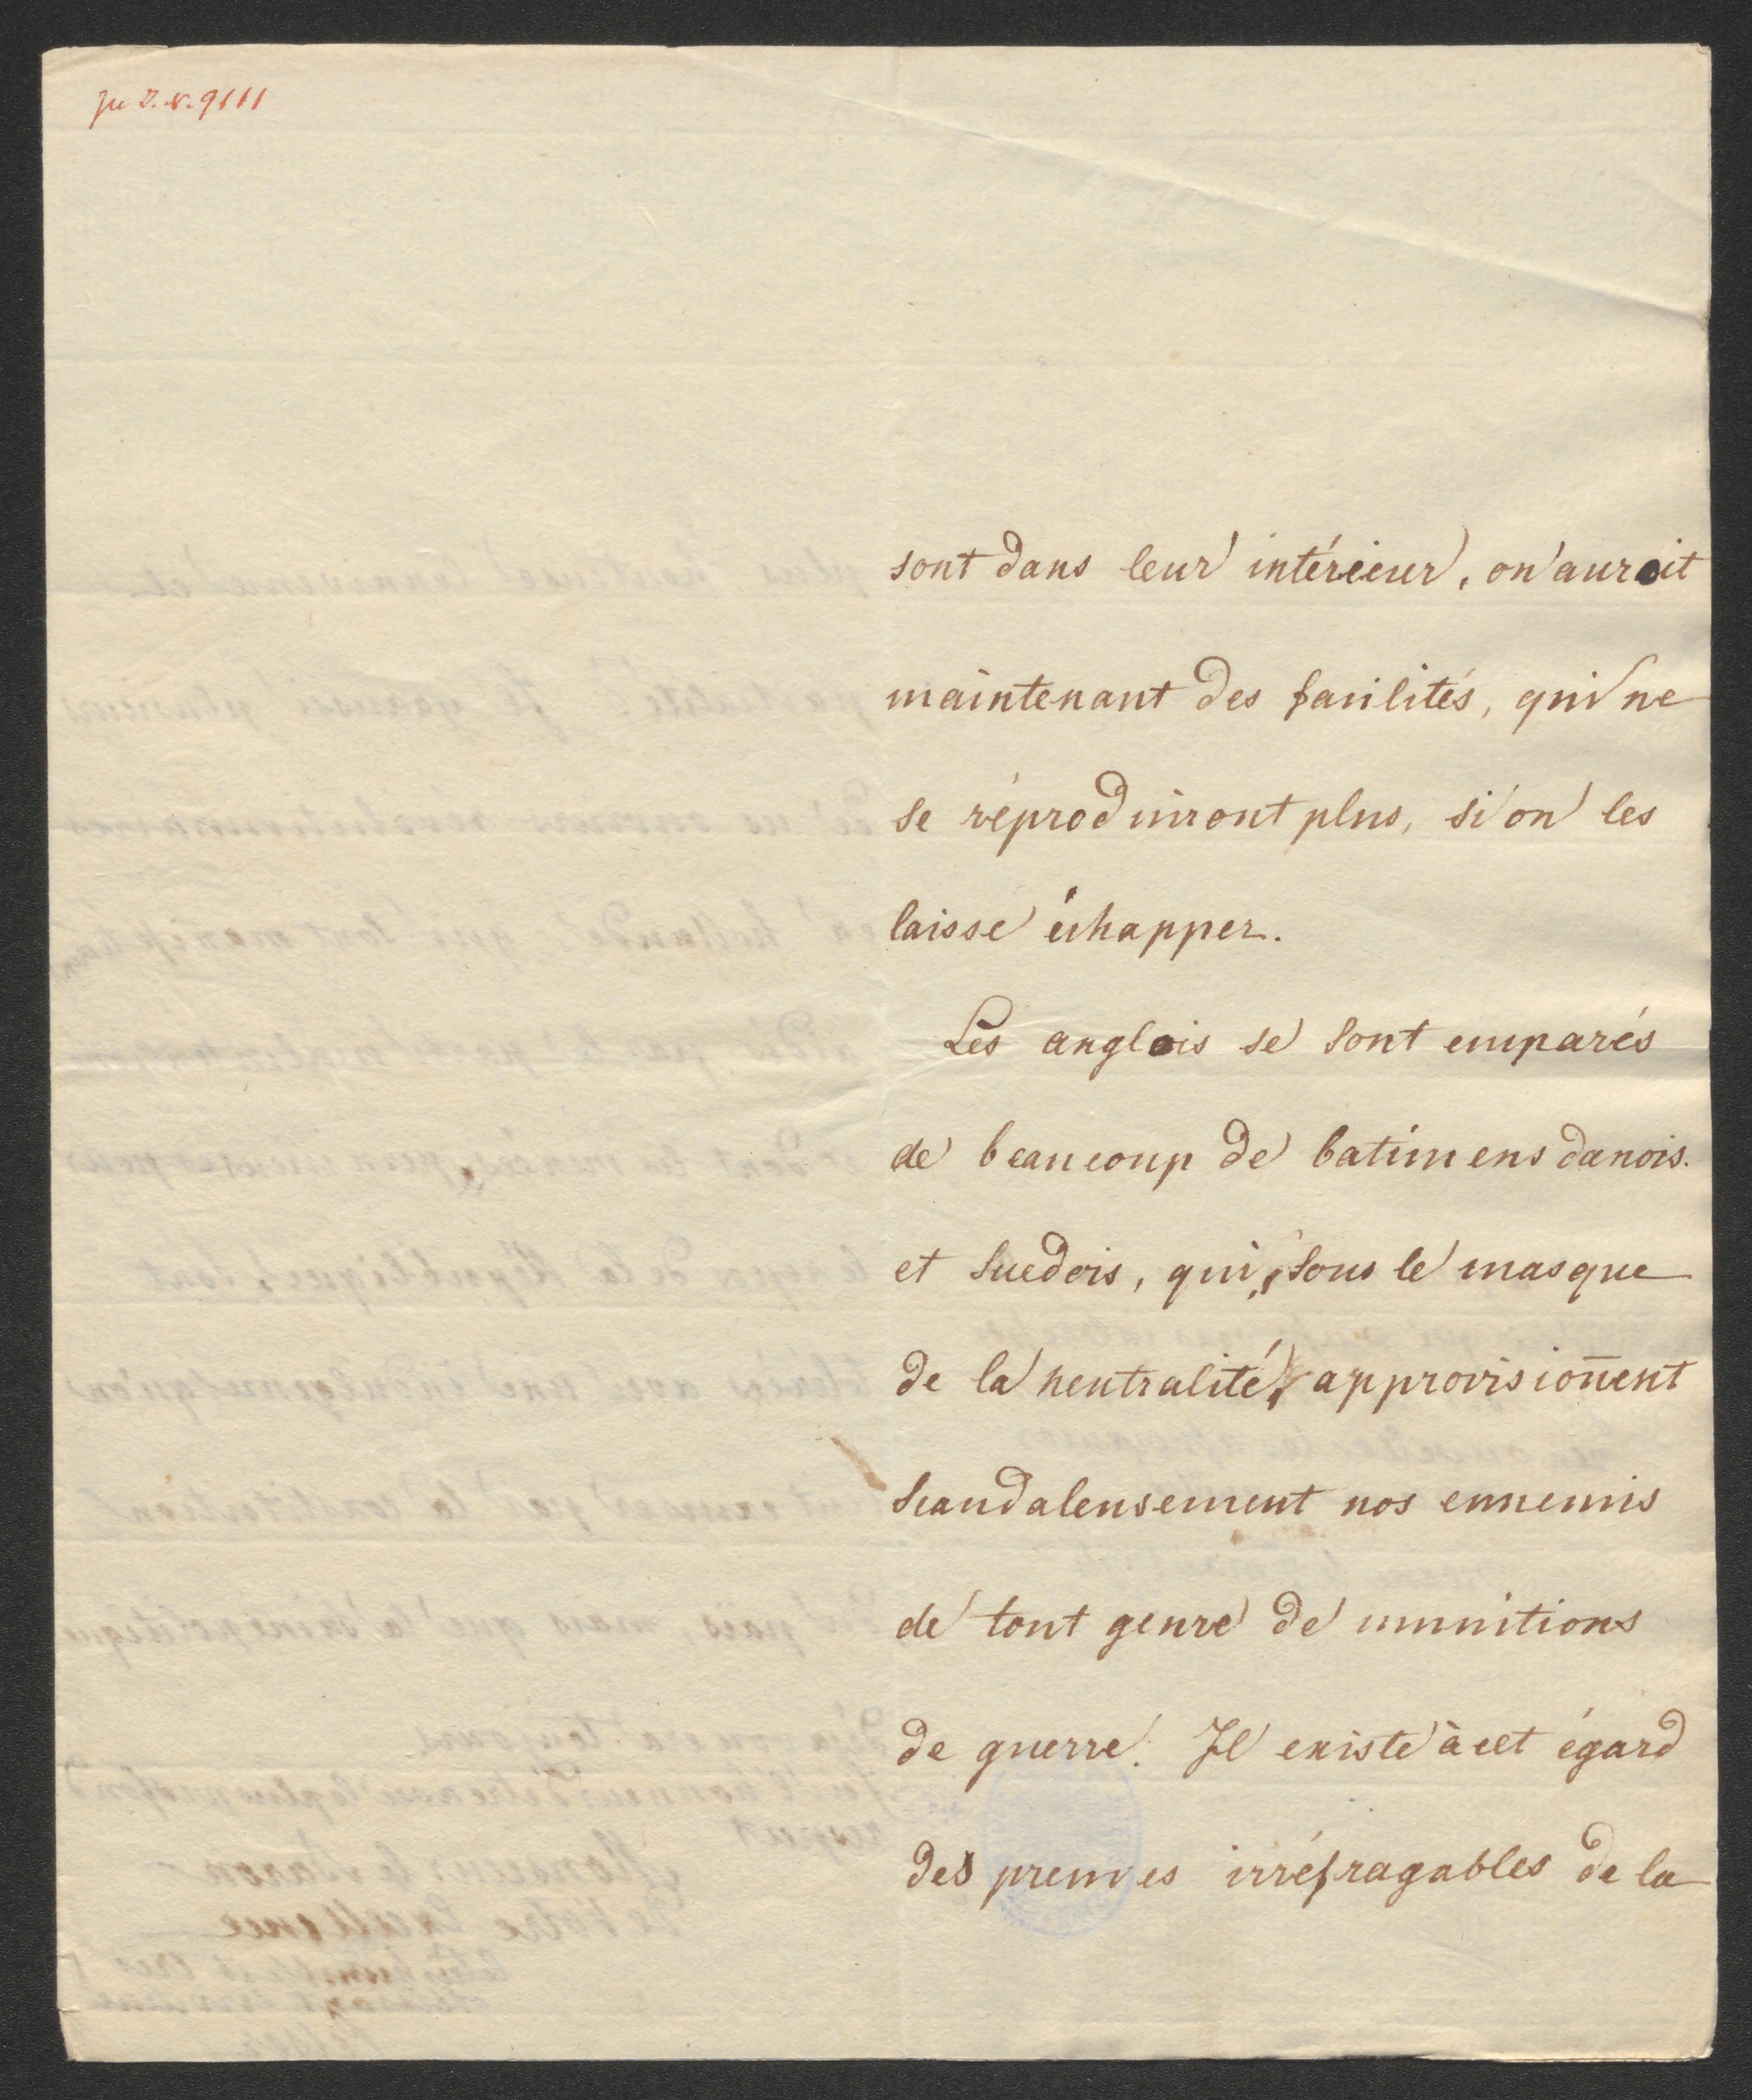 sont dans leur intérieur, on auroit
maintenant des facilités, qui ne
se réproduiront plus, si on les
laisse échapper.
Les anglois se sont emparés
de beaucoup de batimens danois.
et suedois, qui, sous le masque
de la neutralité, approvisioñent
scandaleusement nos ennemis
de tout genre de munitions
de guerre. Il existe à cet égard
des preuves irréfragables de la